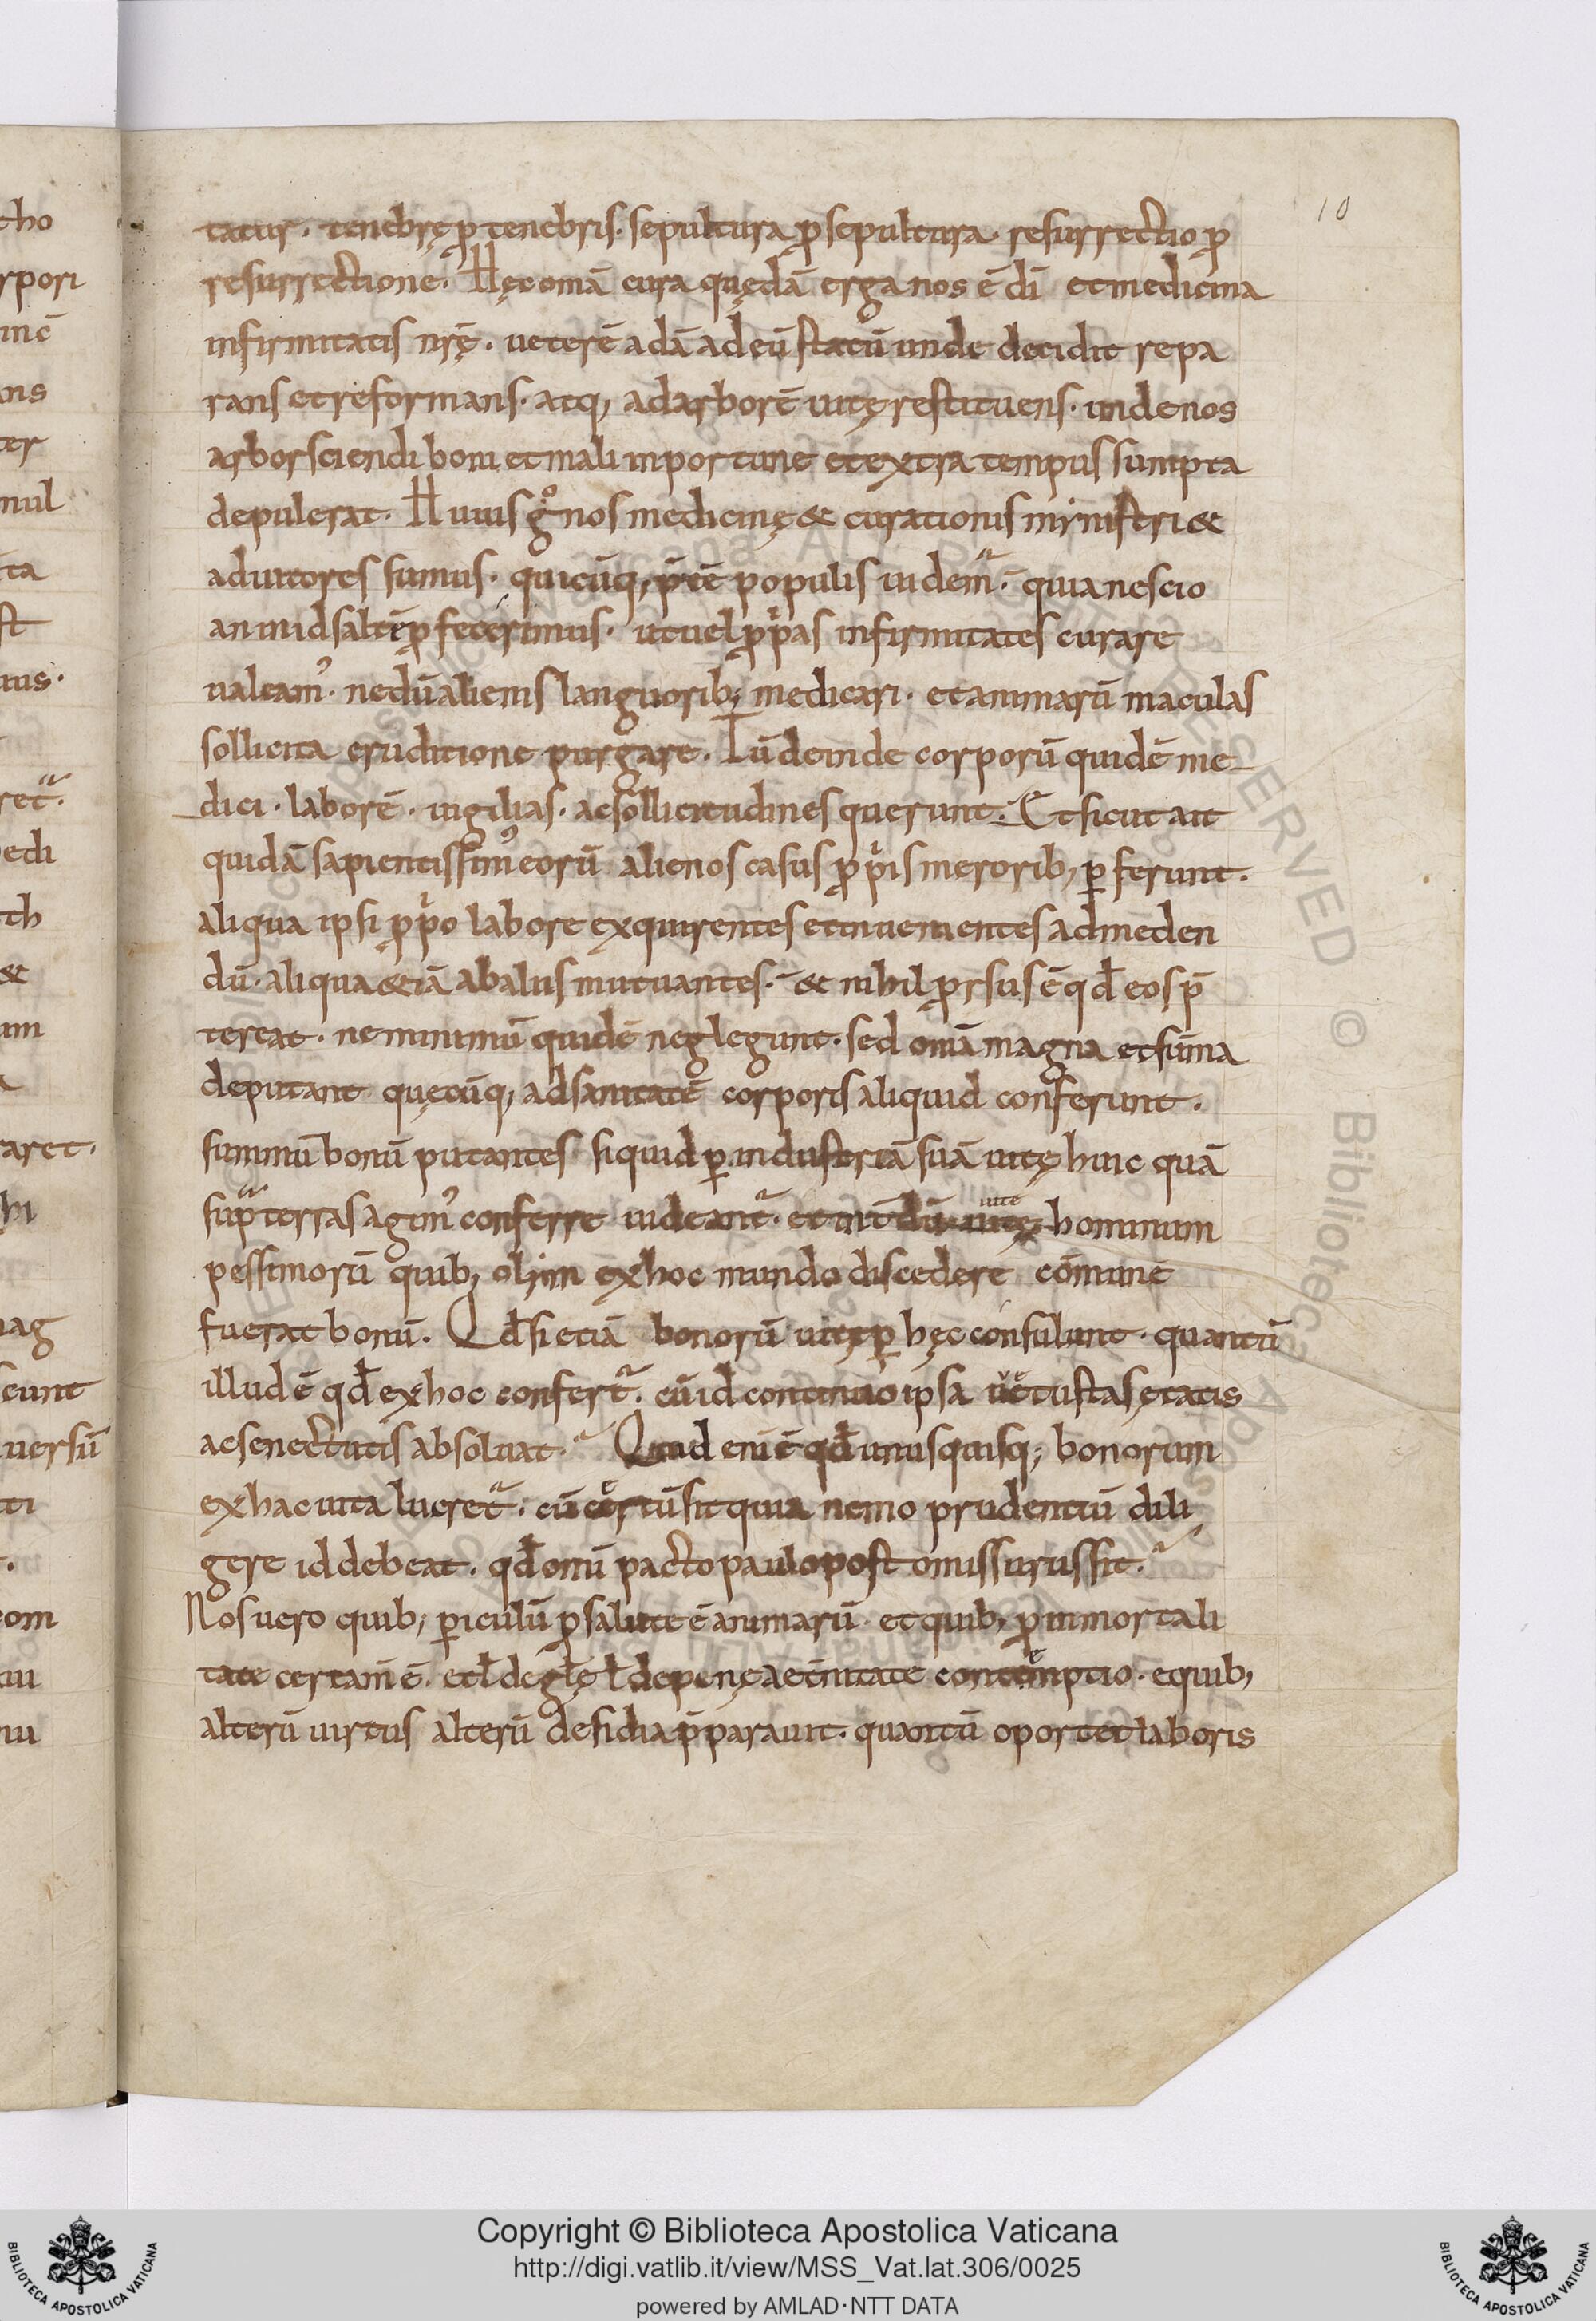 10
tatur. tenebrę ꝓ tenebris. sepultura ꝓ sepultura. resurrectio ꝓ
resurrectione. Hęc omā cura quędā erga nos ē dī et medicina
infirmitatis nrę̄. ueterē adā ad eū statū unde decidit repa
rans et reformans. atq, ad arborē uitę restituens. unde nos
arbor sciendi boni et mali inportune et extra tempus sumpta
depulerat. Huius gͦ nos medicinę & curationis ministri &
adiutores sumus. quicūq, p̄ eē populis uidem̄. quia nescio
an in id saltē ꝓfecerimus. ut uel ꝓpͥas infirmitates curare
ualeam᾽. nedū alienis languorib; medicari. et animarū maculas
sollicita eruditione purgare. Tū deinde corporū quidē me
dici. laborē. uigilias. ac sollicitudines querunt. Et sicut ait
quidā sapientissim᾽ eorū alienos casus ꝓpͥis meroribˏ ꝑferunt.
aliqua ipsi ꝓpͥo labore exquirentes et inuenientes ad meden
dū. aliqua etiā ab aliis mutuantes. & nihil ꝓrsus ē qd̄ eos p̄
tereat. ne minimū quidē neglegunt. sed omā magna et sūma
deputant quęcūq, ad sanitatē corporis aliquid conferunt.
summū bonū putantes si quid ꝑ industriā suā uitę huic quā
sup̄ terras agim᾽ conferre uideant̄. et int̄dū uitę hominum
uite
pessimorū quib, olim ex hoc mundo discedere cōmune
fuerat bonū. Qd̄ si etiā bonorū uitę ꝑ hęc consulunt. quantū
illud ē qd̄ ex hoc confert̄. cū id continuo ipsa uetustas ętatis
ac senectutis absoluat. Quid eni ē qd̄ unusquisq; bonorum
ex hac uita lucret̄. cū certū sit quia nemo prudentiū dili
gere id debeat. qd̄ omū pacto paulo post omissurus sit.
Nos uero quib; ꝑiculū ꝓ salute ē animarū et quib, ꝓ inmortali
tate certam̄ ē. et ł de głę ł de penę aet̄nitate contemptio. e quib,
alterū uirtus alterū desidia p̄parauit. quantū oportet laboris
Copyright © Biblioteca Apostolica Vaticana
http://digi.vatlib.it/view/MSS_Vat.lat.306/0025
powered by AMLAD·NTT DATA
BIBLIOTECA APOSTOLICA VATICANA
BIBLIOTECA APOSTOLICA VATICANA